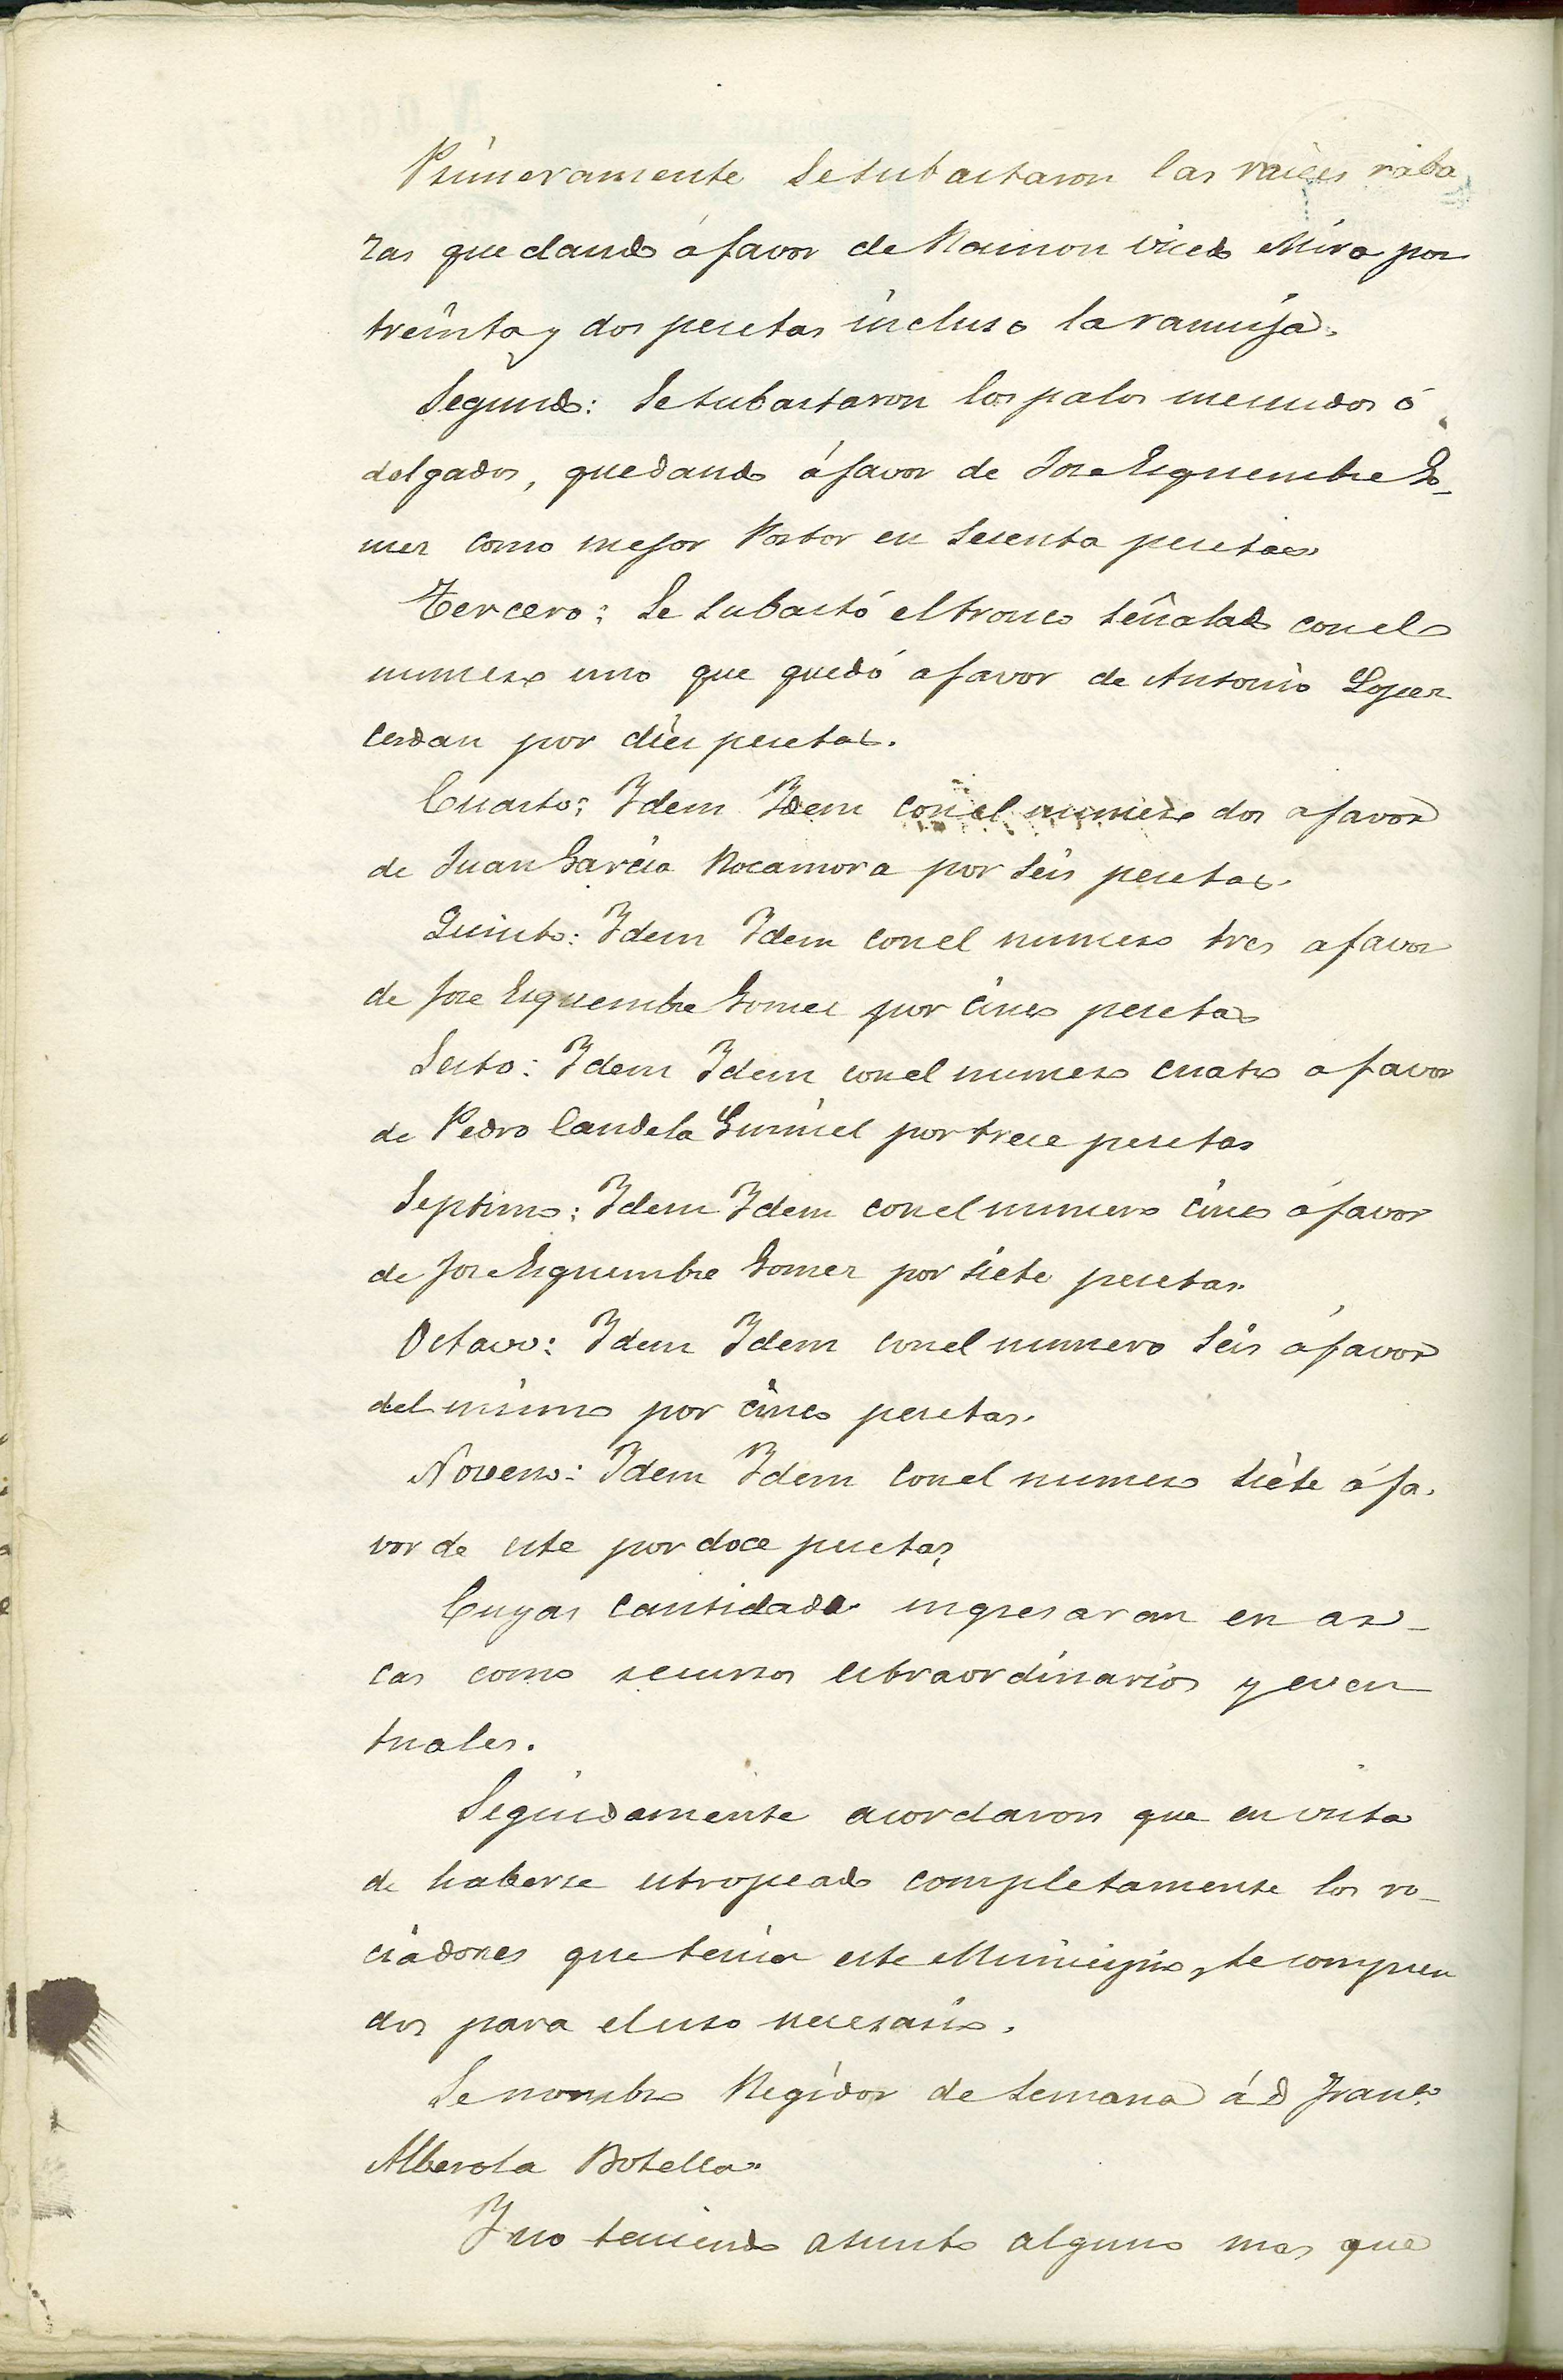 Primeramente se subastaron las raices raba
zas quedando á favor de Ramon Vicedo Mira por
treinta y dos pesetas incluso la ramuja.
Segundo: Se subastaron los palos menudos ó
delgados, quedando á favor de Jose Esquembre Go-
mez como mejor Postor en sesenta pesetas
Tercero: Se subastó el tronco señalado con el
numero uno que quedó a favor de Antonio Lopez
Cerdan por diez pesetas.
Cuarto: Idem Idem con el numero dos a favor
de Juan Garcia Rocamora por seis pesetas.
Quinto: Idem Idem con el numero tres a favor
de Jose Esquembre Gomez por cinco pesetas
Sesto: Idem Idem con el numero cuatro a favor
de Pedro Candela Guimel por trece pesetas
Septimo: Idem Idem con el numero cinco á favor
de Jose Esquembre Gomez por siete pesetas.
Octavo: Idem Idem con el numero seis á favor
del mismo por cinco pesetas.
Noveno: Idem Idem con el numero siete á fa-
vor de este por doce pesetas,
Cuyas cantidades ingresaran en ar-
cas como recursos estraordinarios y even
tuales.
Seguidamente acordaron que en vista
de haberse estropeado completamente los ro-
ciadores que tenia este Municipio, se compren
dos para el uso necesario.
Se nombro Regidor de semana á D Franco.
Alberola Botella.
Y no teniendo asunto alguno mas que